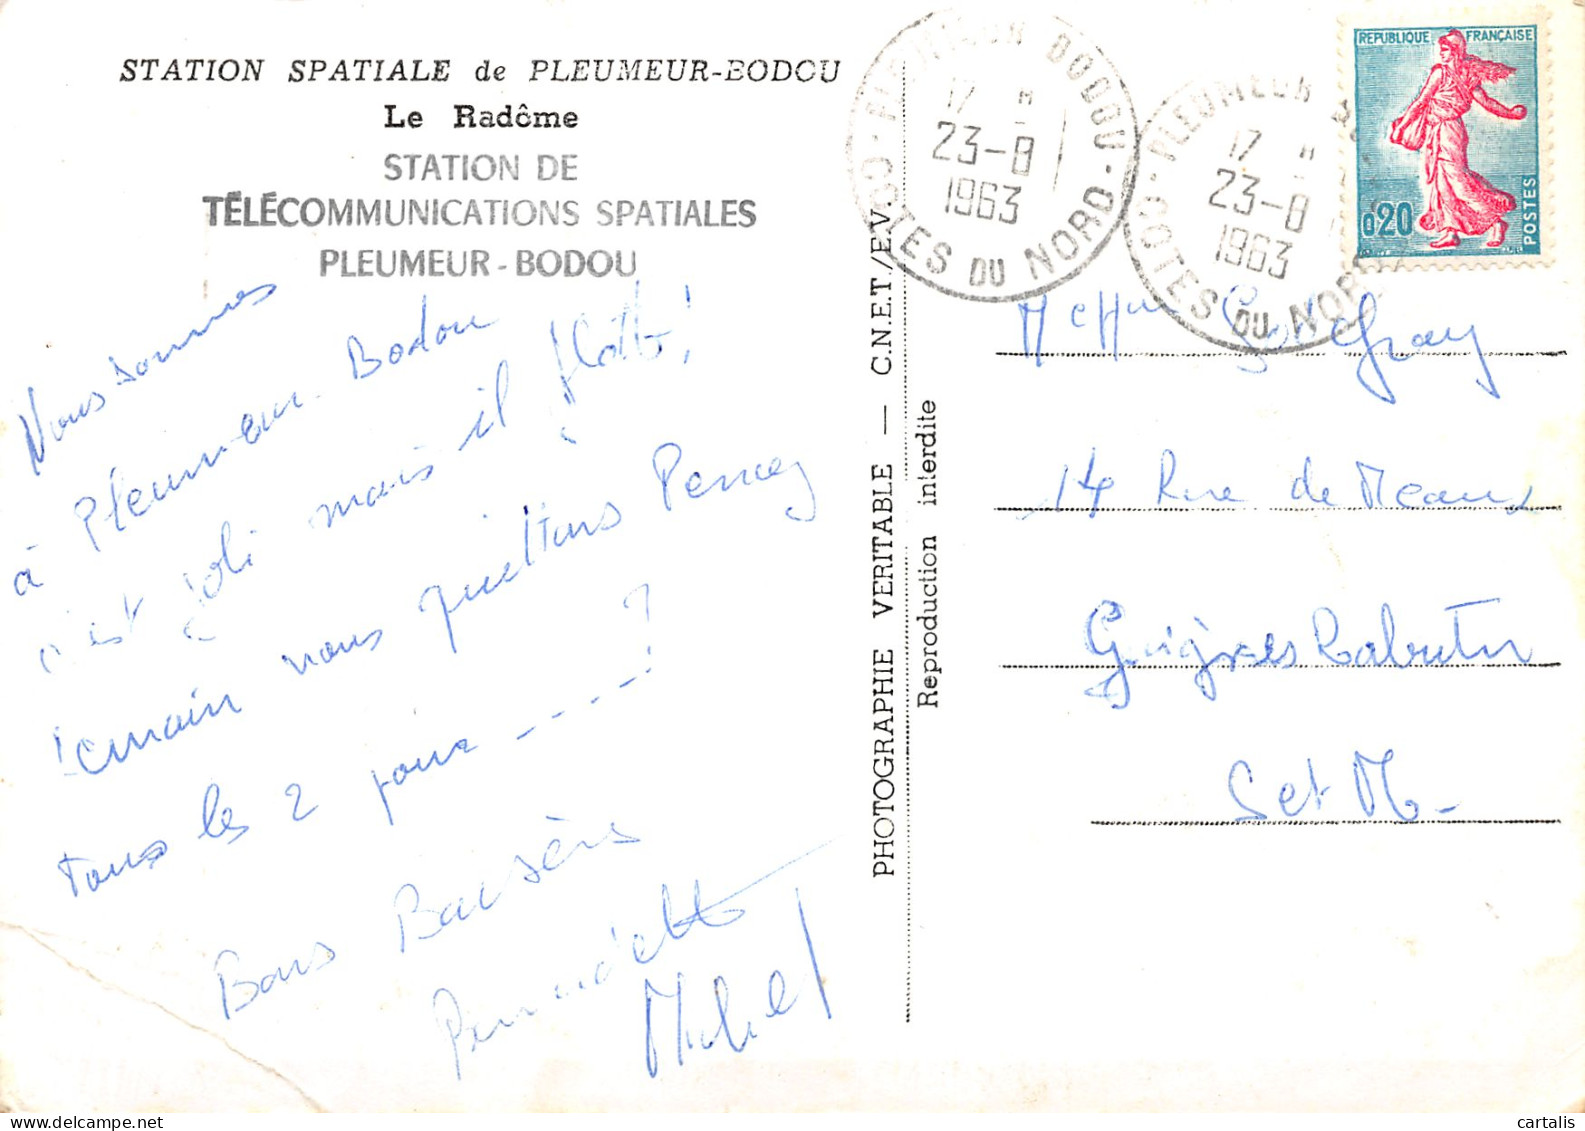 STATION SPATIALE de PLEUMEUR-BODOU
Le Radôme
STATION DE
TÉLÉCOMMUNICATIONS SPATIALES
PLEUMEUR - BODOU
Nous sommes
à Pleumeur-Bodou
c'est joli mais il flotte!
Demain nous quittons
tous les 2 pour ----?
Bons Baisers
Bernadette
Michel
PHOTOGRAPHIE VERITABLE — C.N.E.T./E.V.
Reproduction interdite
PLEUMEUR BODOU
17 H
23-8
1963
COTES DU NORD
PLEUMEUR
17 H
23-8
1963
COTES DU NORD
REPUBLIQUE FRANÇAISE
0,20
POSTES
M et Mme
14 Rue de Meaux
Guignes Rabutin
S et M.
cartalis